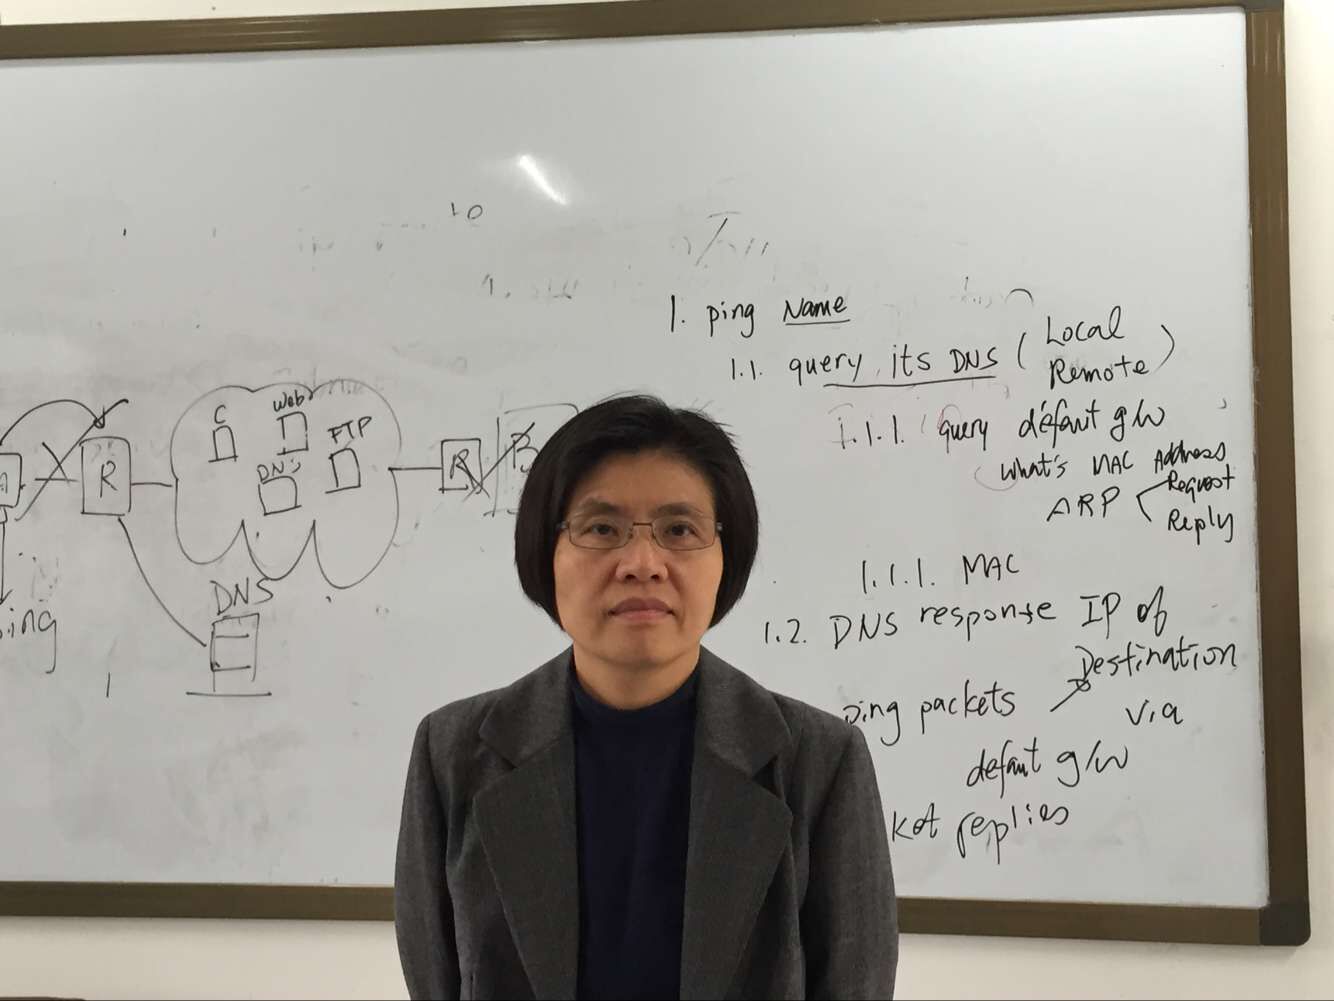 10
1. ping Name
1.1. query its DNS ( Local
Remote )
1.1.1. query defaut g/w
what's MAC Address
ARP < Request
Reply
1.1.1. MAC
1.2. DNS response IP of
Destination
ping packets
via
defaut g/w
ket replies
C
Web
FTP
DNS
R
R
B
A
DNS
ping